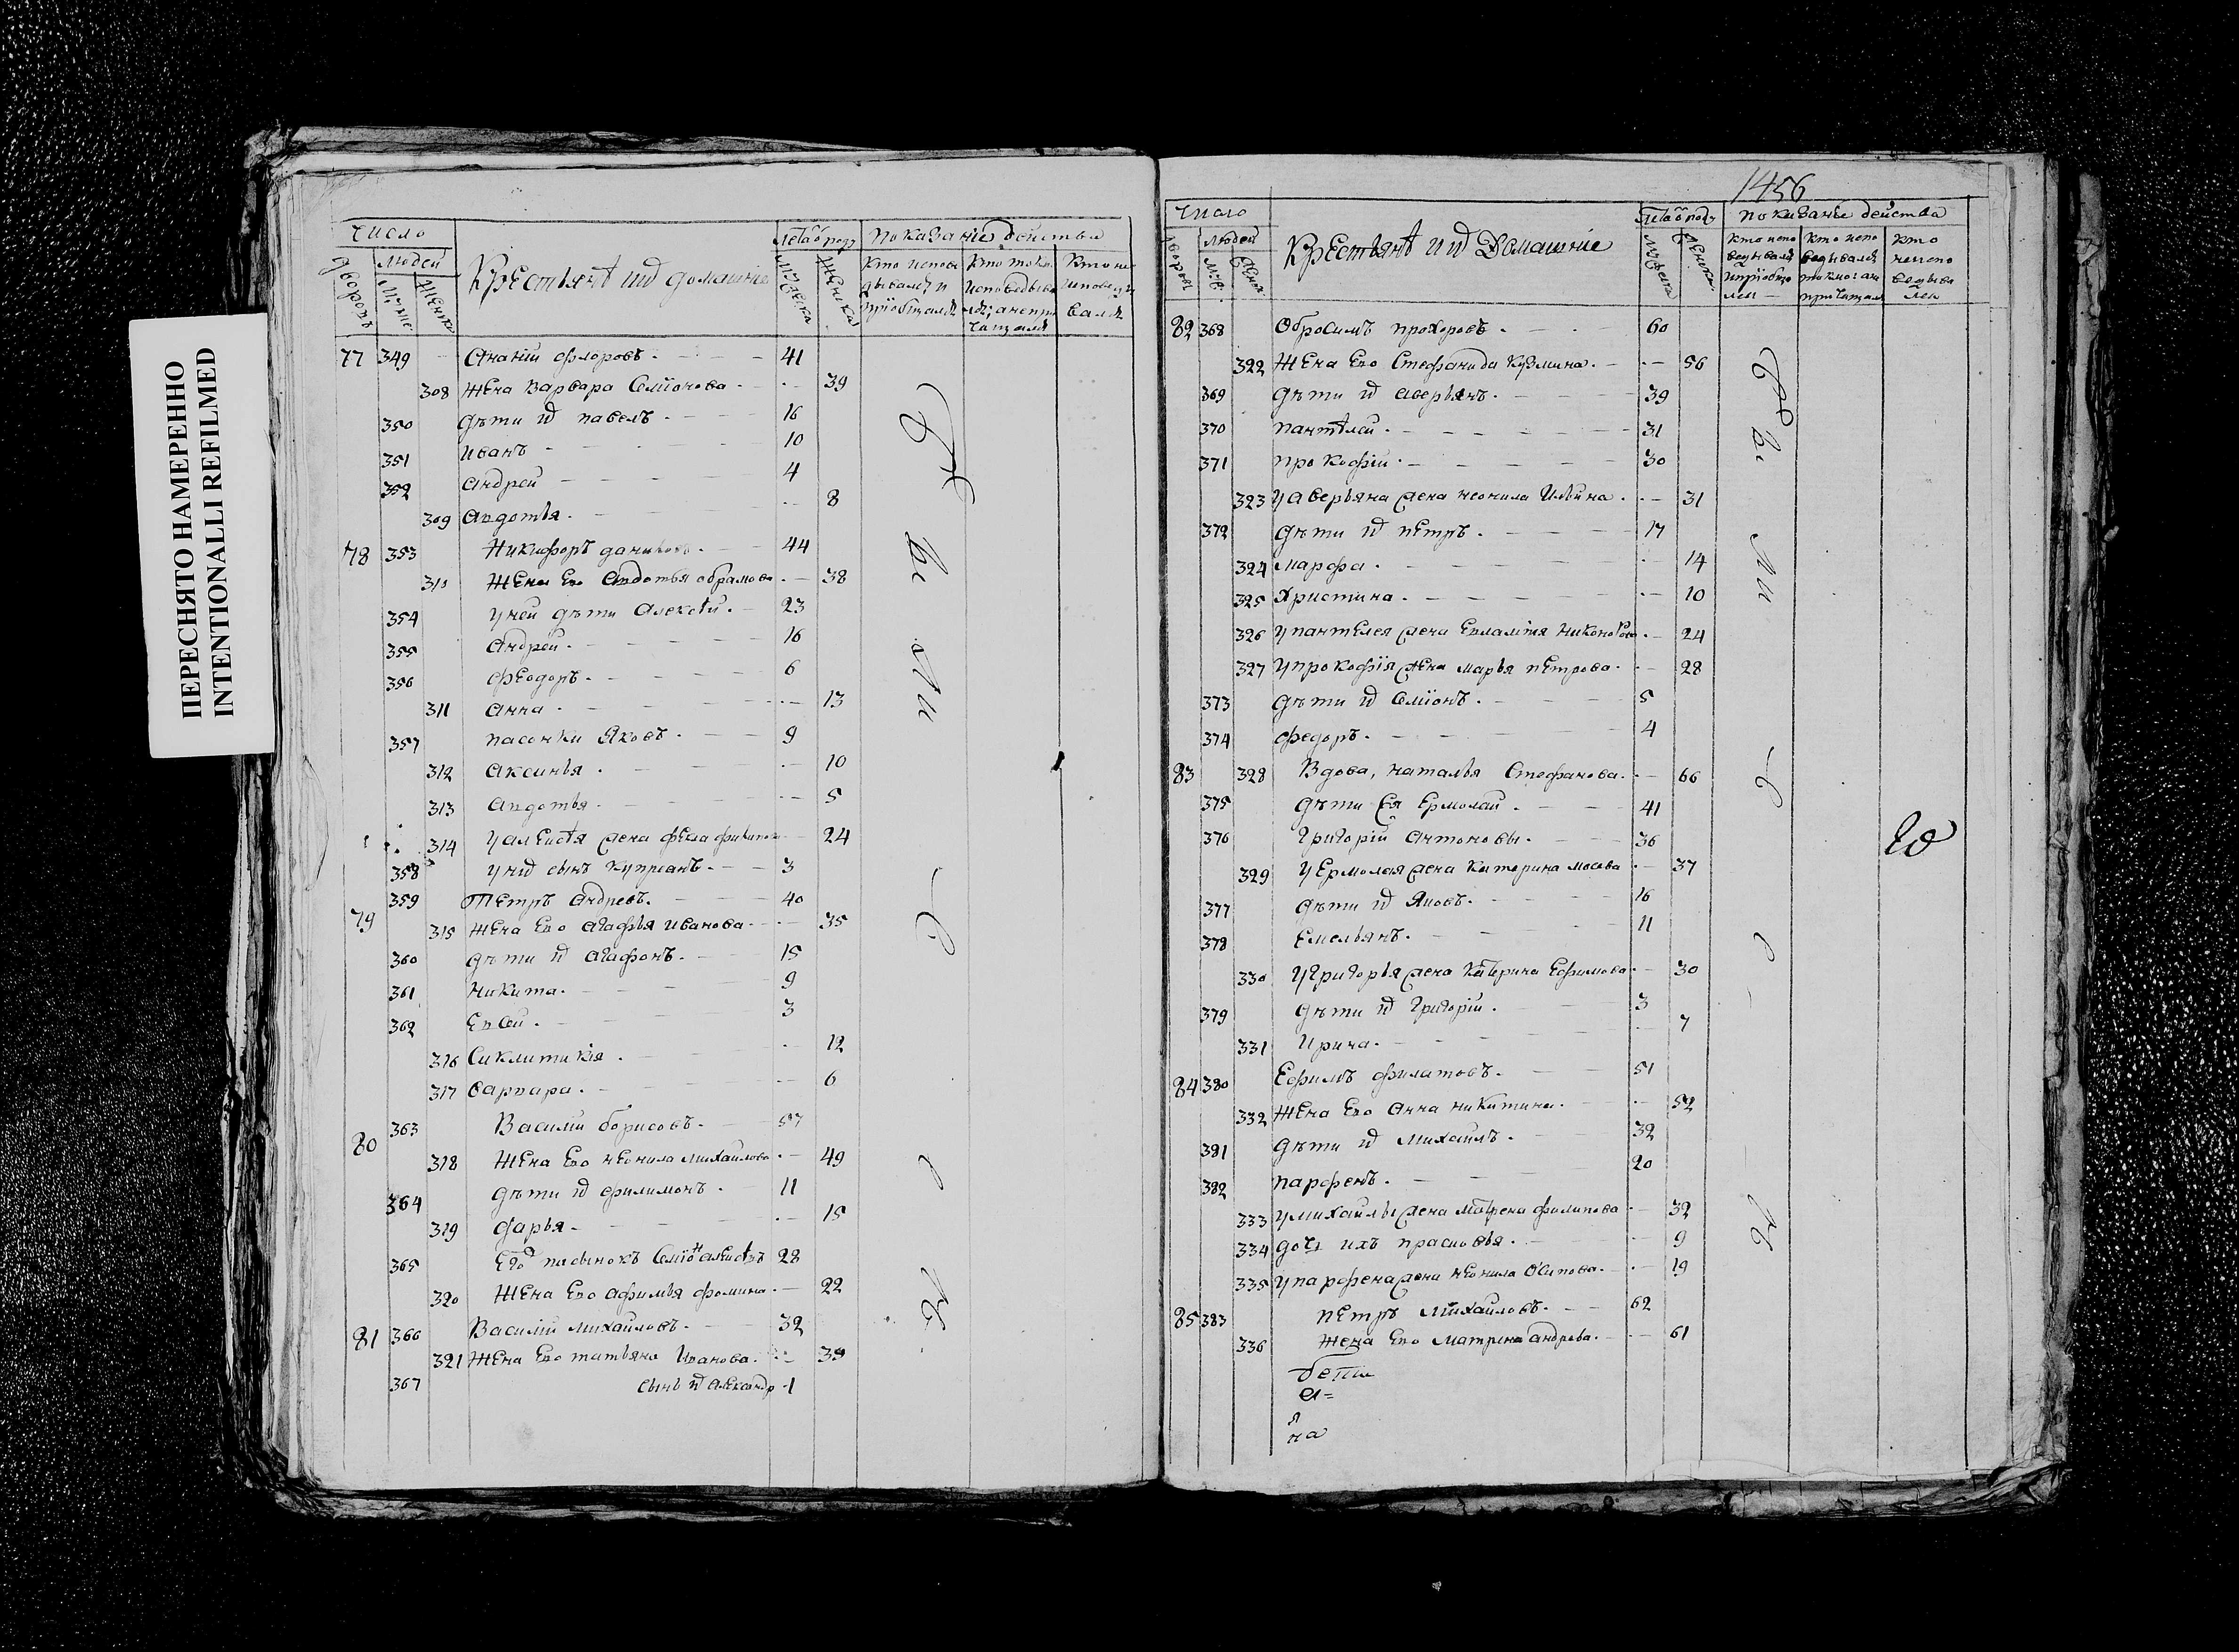 ПЕРЕСНЯТО НАМЕРЕННО
INTENTIONALLI REFILMED
число
людей
дворовъ
Крестьянѣ ихъ домашніе
лета от роду
показаніе действа
77 349 Ананій флоровъ. 41
308 жена Варвара Семіонова 39
350 дѣти их павелъ 16
351 иванъ 10
352 андрей 4
309 авдотья. 8
78 353 Никифоръ даниловъ. 44
310 жена его авдотья абрамова 38
354 у ней дѣти алексѣй. 23
355 андрей. 16
356 феодоръ. 6
311 анна. 13
357 пасонки Яковъ. 9
312 аксинья. 10
313 авдотья. 5
314 у алексѣя жена фекла 24
358 у них сынъ купріанъ. 3
79 359 петръ андреевъ. 40
315 жена его агафья иванова 35
360 дѣти их агафонъ. 15
361 никита. 9
362 евсей. 3
316 Сиклитикія. 12
317 варвара. 6
80 363 Василій борисовъ. 57
318 жена его неонила михайлова 49
364 дѣти их филимонъ. 11
319 дарья 15
365 его пасынокъ Семіонъ 28
320 жена его афимья фомина. 22
81 366 Василій михайловъ. 32
321 жена его татьяна иванова. 39
367 сынъ их александр 1
1456
число
людей
дворовъ
Крестьянѣ ихъ Домашніе
лета от роду
показаніе действа
82 368 обросимъ прохоровъ. 60
322 жена его Стефанида кузмина. 56
369 дѣти их аверьянъ. 39
370 пантѣлей. 31
371 прокофій. 30
323 у аверьяна жена неонила ильина. 31
372 дѣти их петръ. 17
324 марфа. 14
325 христина. 10
326 у пантелея жена евлампия никонорова 24
327 у прокофія жена марья петрова. 28
373 дѣти их Семіонъ. 5
374 федоръ. 4
83 328 Вдова, наталья Стефанова. 66
375 дѣти ея ермолай. 41
376 григорій антоновы. 36
329 у ермолая жена катерина 37
377 дѣти их Яковъ. 16
378 емельянъ. 11
330 у григорья жена катерина ефимова 30
379 дѣти их григорій. 3
331 ирина. 7
84 380 Ефимъ филатовъ. 51
332 жена его анна никитина. 52
381 дѣти их михаилъ. 32
382 парфенъ. 20
333 у михайлы жена матрена филипова 32
334 дочь ихъ прасковья. 9
335 у парфена жена неонила осипова. 19
85 383 петръ михайловъ. 62
336 жена его матрена андрева. 61